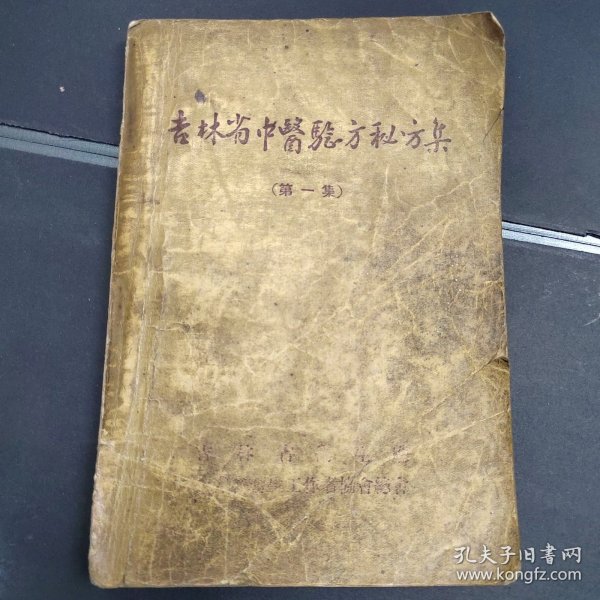 吉林省中醫驗方秘方集
(第一集)
工作者協會編
孔夫子旧书网
www.kongfz.com